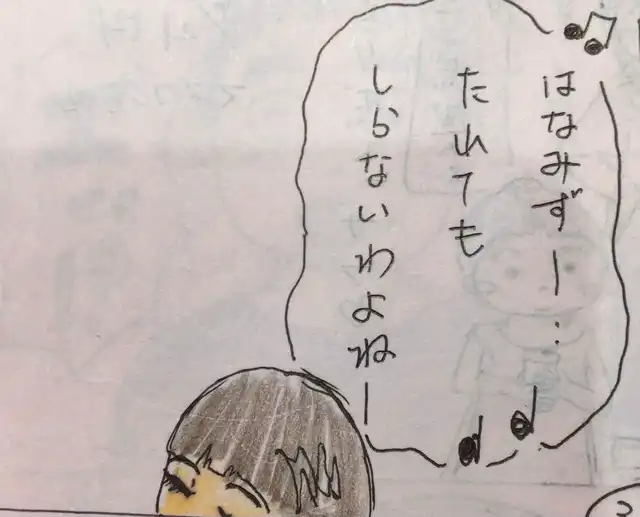 はなみずー…
たれても
しらないわよねー